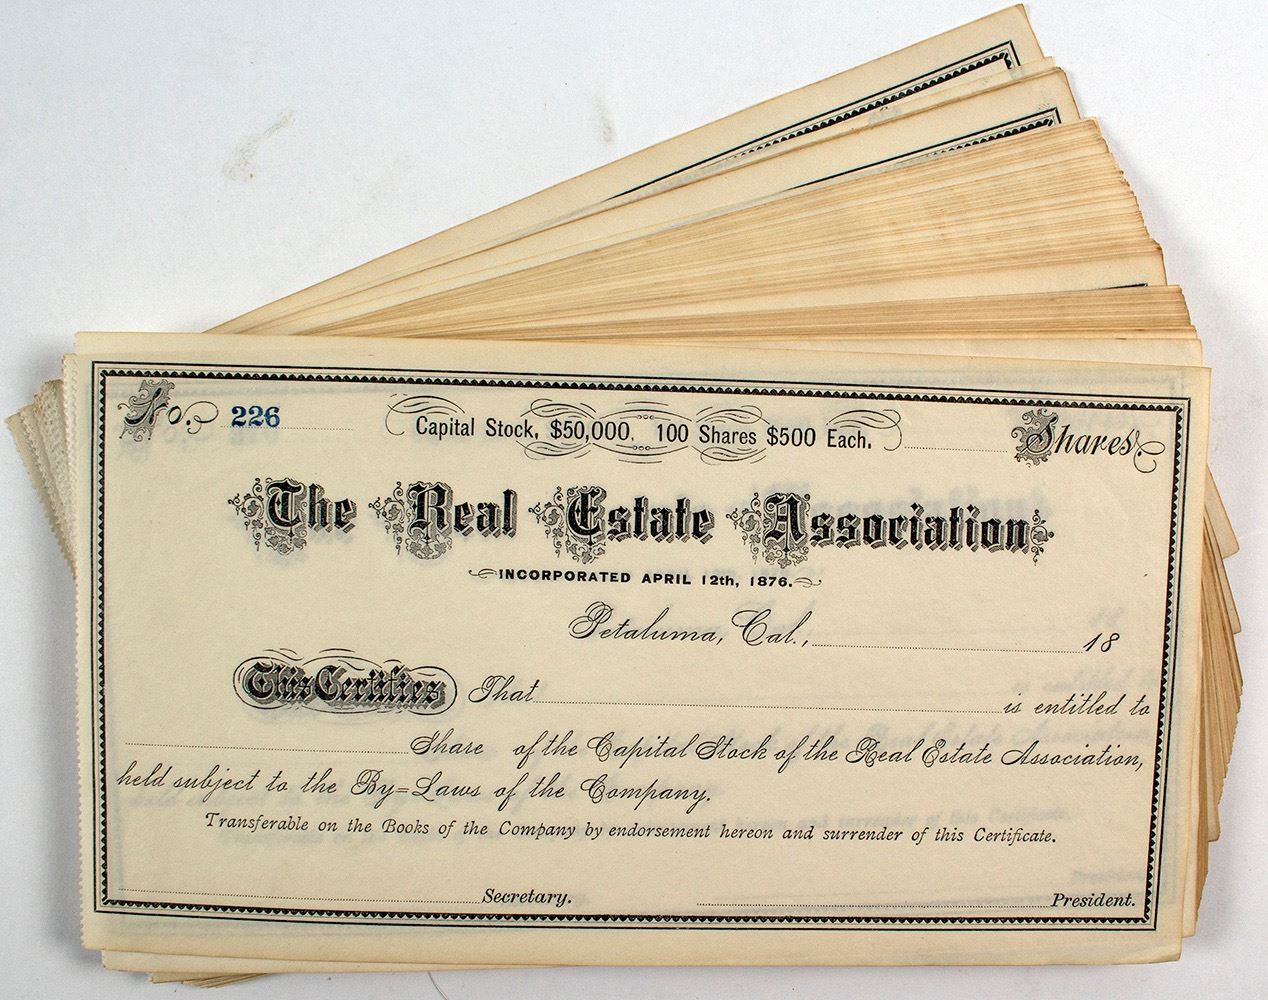 No. 226 Capital Stock, $50,000, 100 Shares $500 Each. Shares.
The Real Estate Association
INCORPORATED APRIL 12th, 1876.
Petaluma, Cal., 18
This Certifies That is entitled to
Share of the Capital Stock of the Real Estate Association,
held subject to the By=Laws of the Company.
Transferable on the Books of the Company by endorsement hereon and surrender of this Certificate.
Secretary. President.